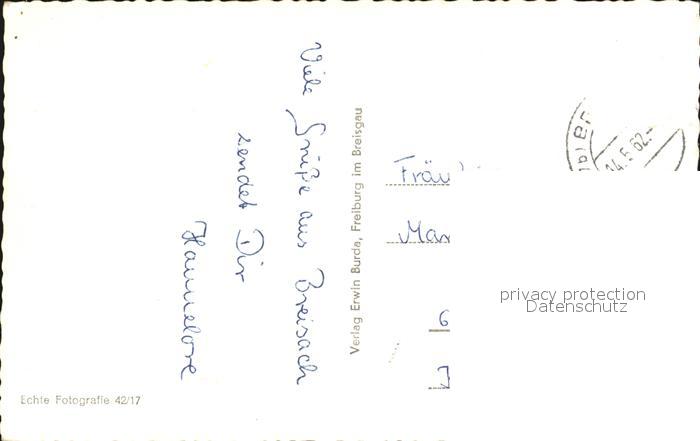 Viele Grüße aus Breisach
sendet Dir
Hannelore
Echte Fotografie 42/17
Verlag Erwin Burda, Freiburg im Breisgau
Fräu
Mar
6
14.5.62.-
privacy protection
Datenschutz